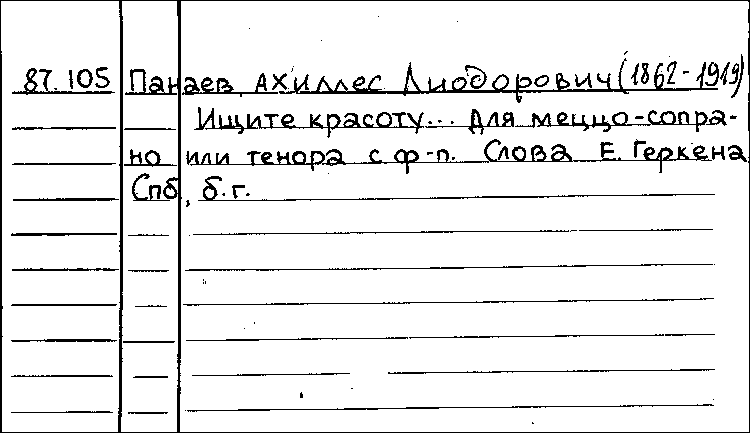 87.105 Панаев, Ахиллес Лиодорович (1862-1919)
Ищите красоту... Для меццо-сопра-
но или тенора с ф-п. Слова Е. Геркена
Спб, б.г.